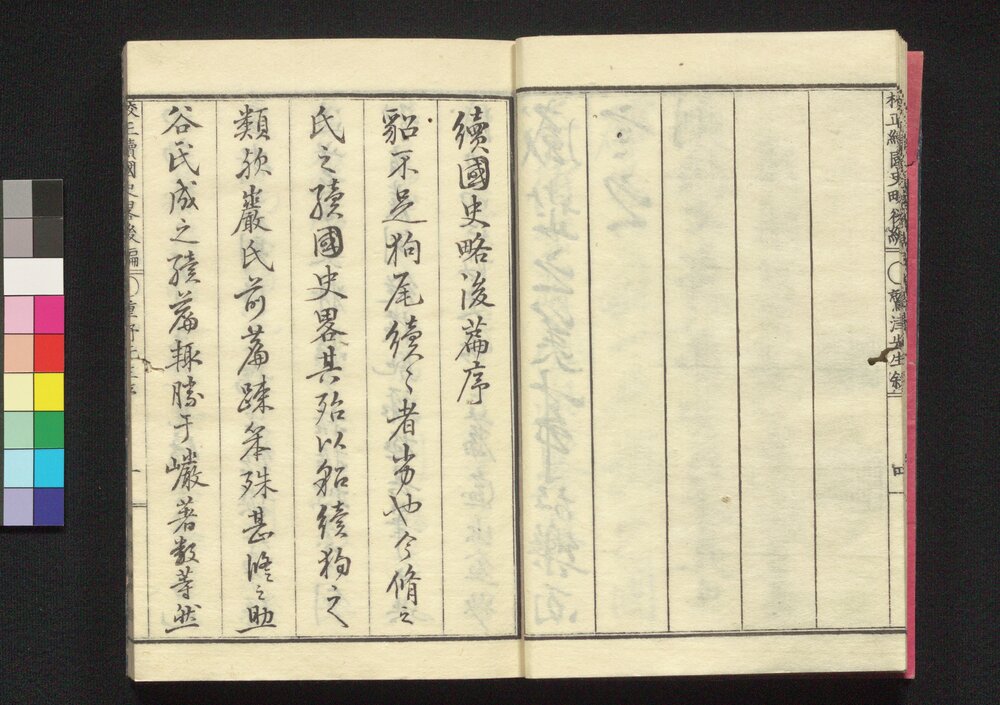 校正續國史略後編 〇 鷲津先生叙 四
續國史略後篇序
貂不足狗尾續〻者劣也今脩之
氏之續國史畧其殆以貂續狗之
類歟巖氏前篇疎笨殊甚脩之助
谷氏成之續篇輒勝于巖著数等然
校正續國史畧後編 〇 重野先生序 一